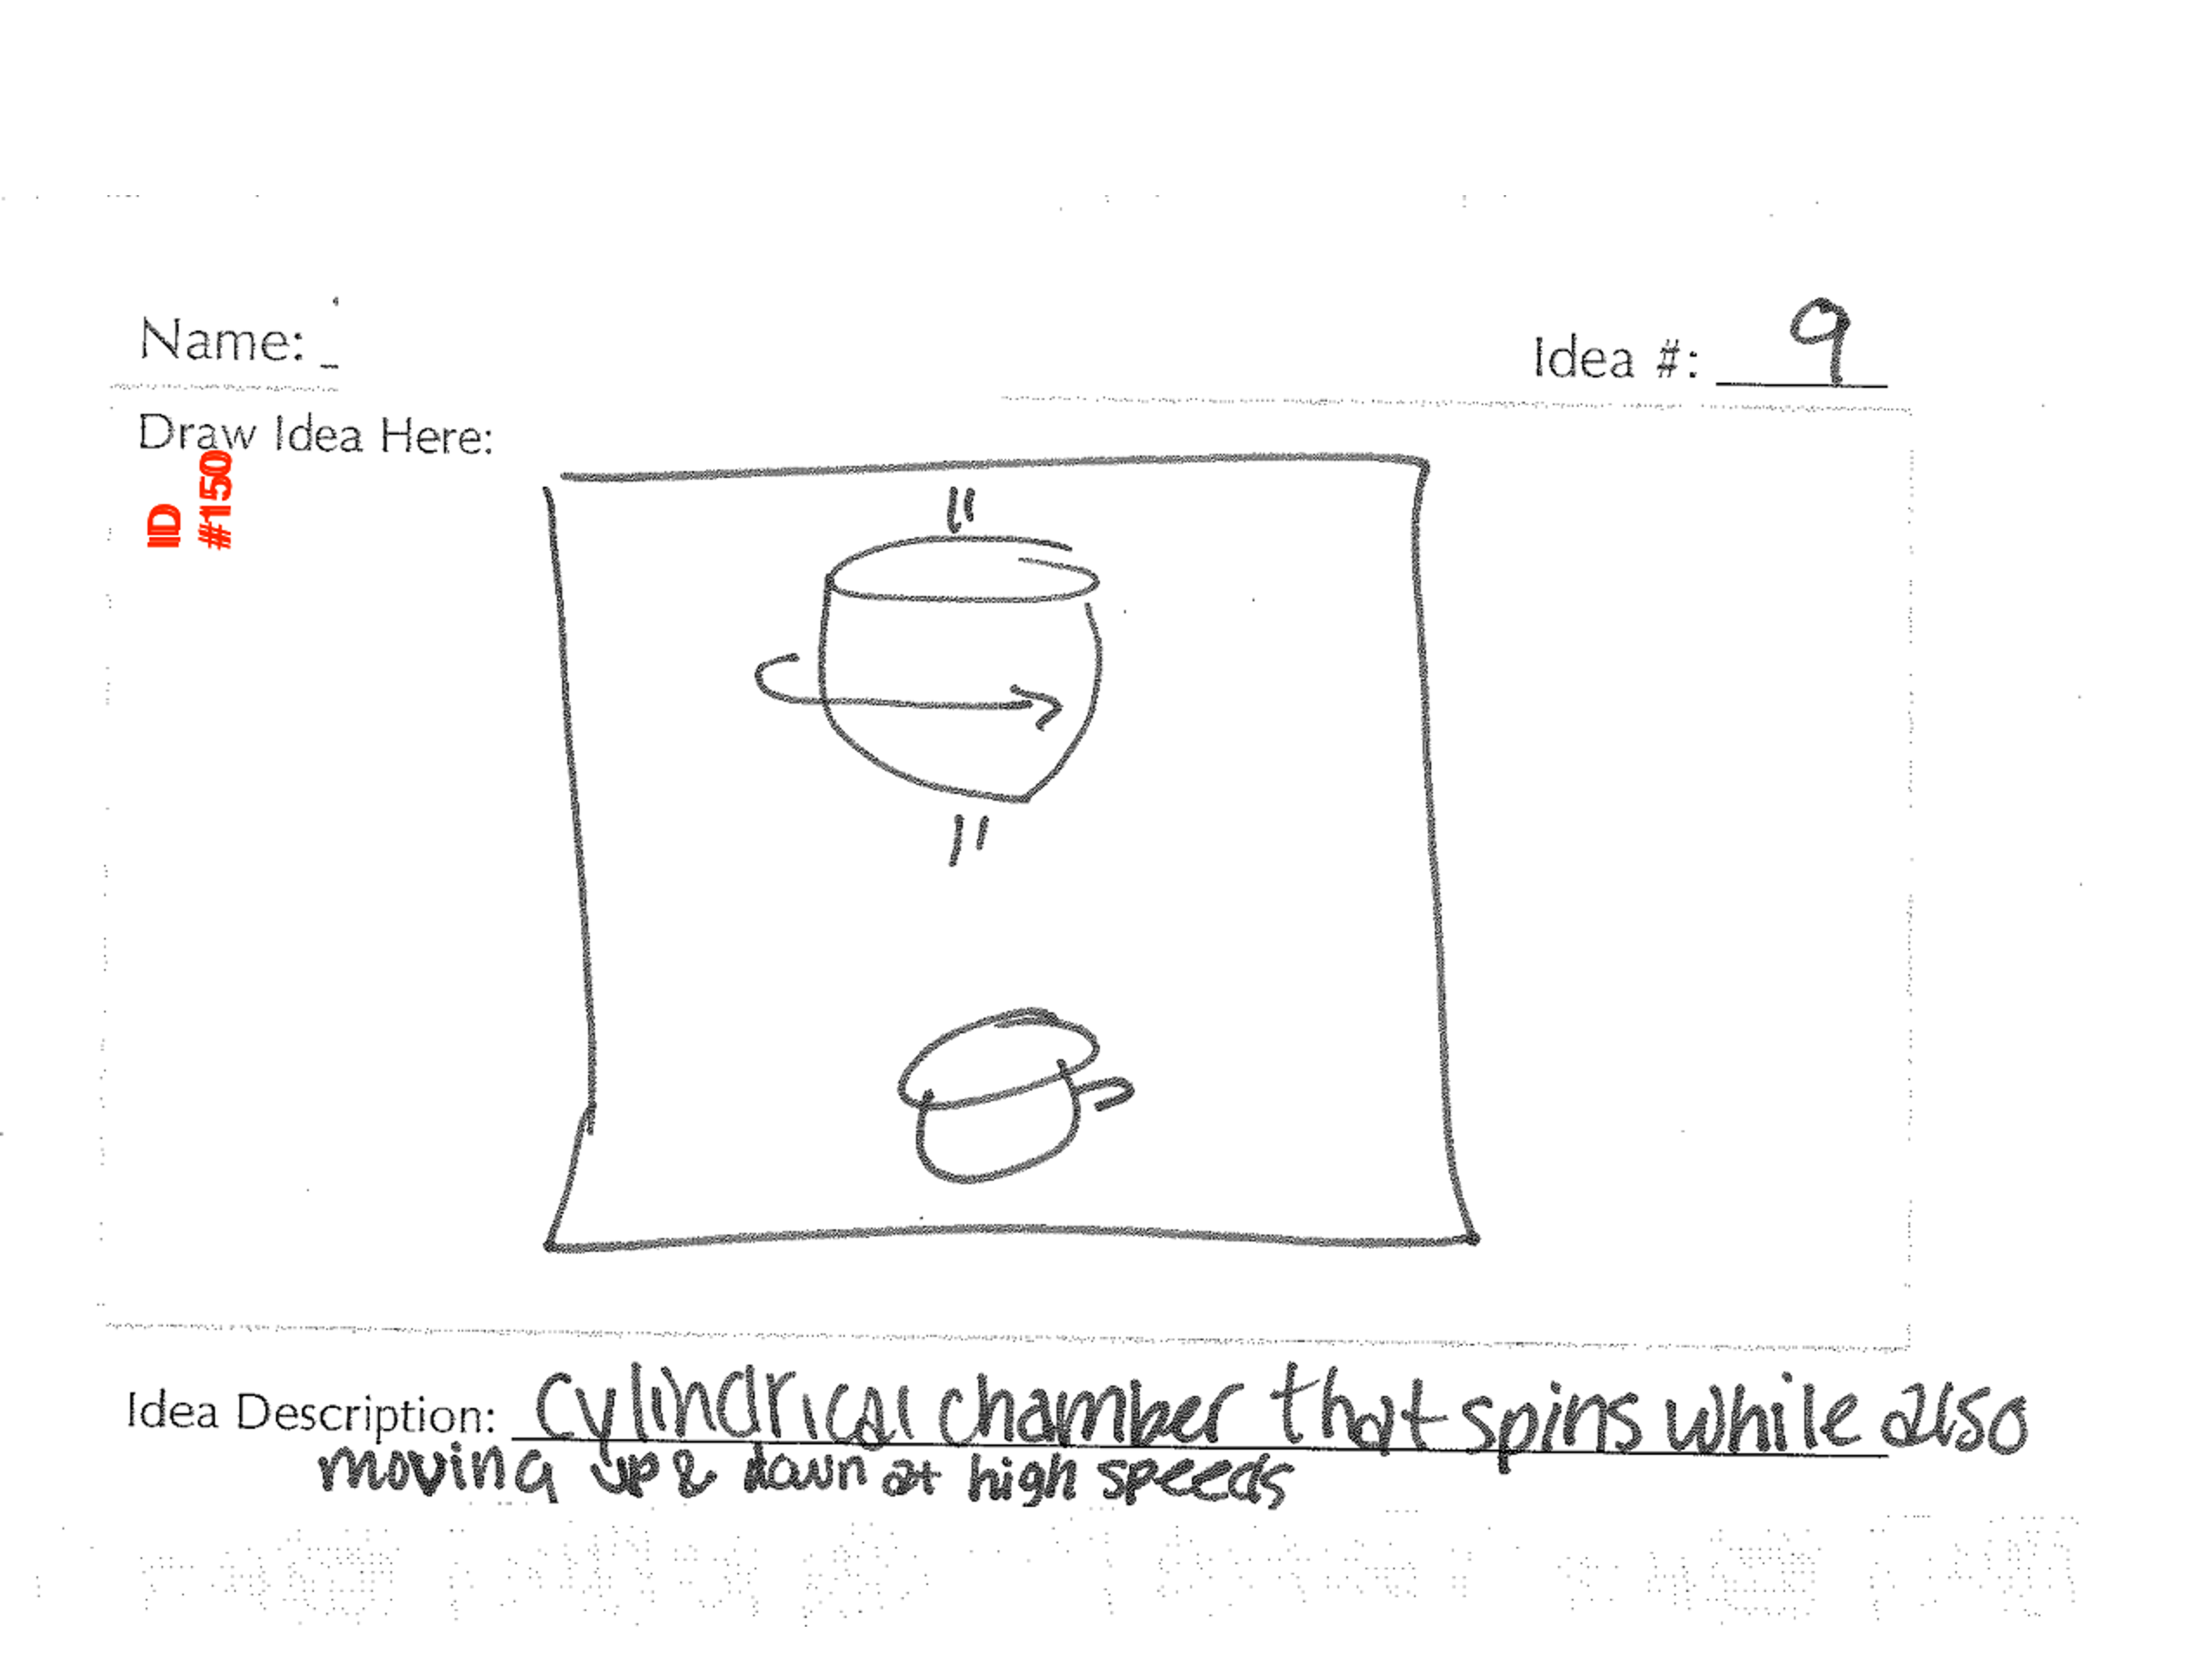 Name:
Idea #: 9
Draw Idea Here:
IID
#150
Idea Description: Cylindrical chamber that spins while also
moving up & down at high speeds